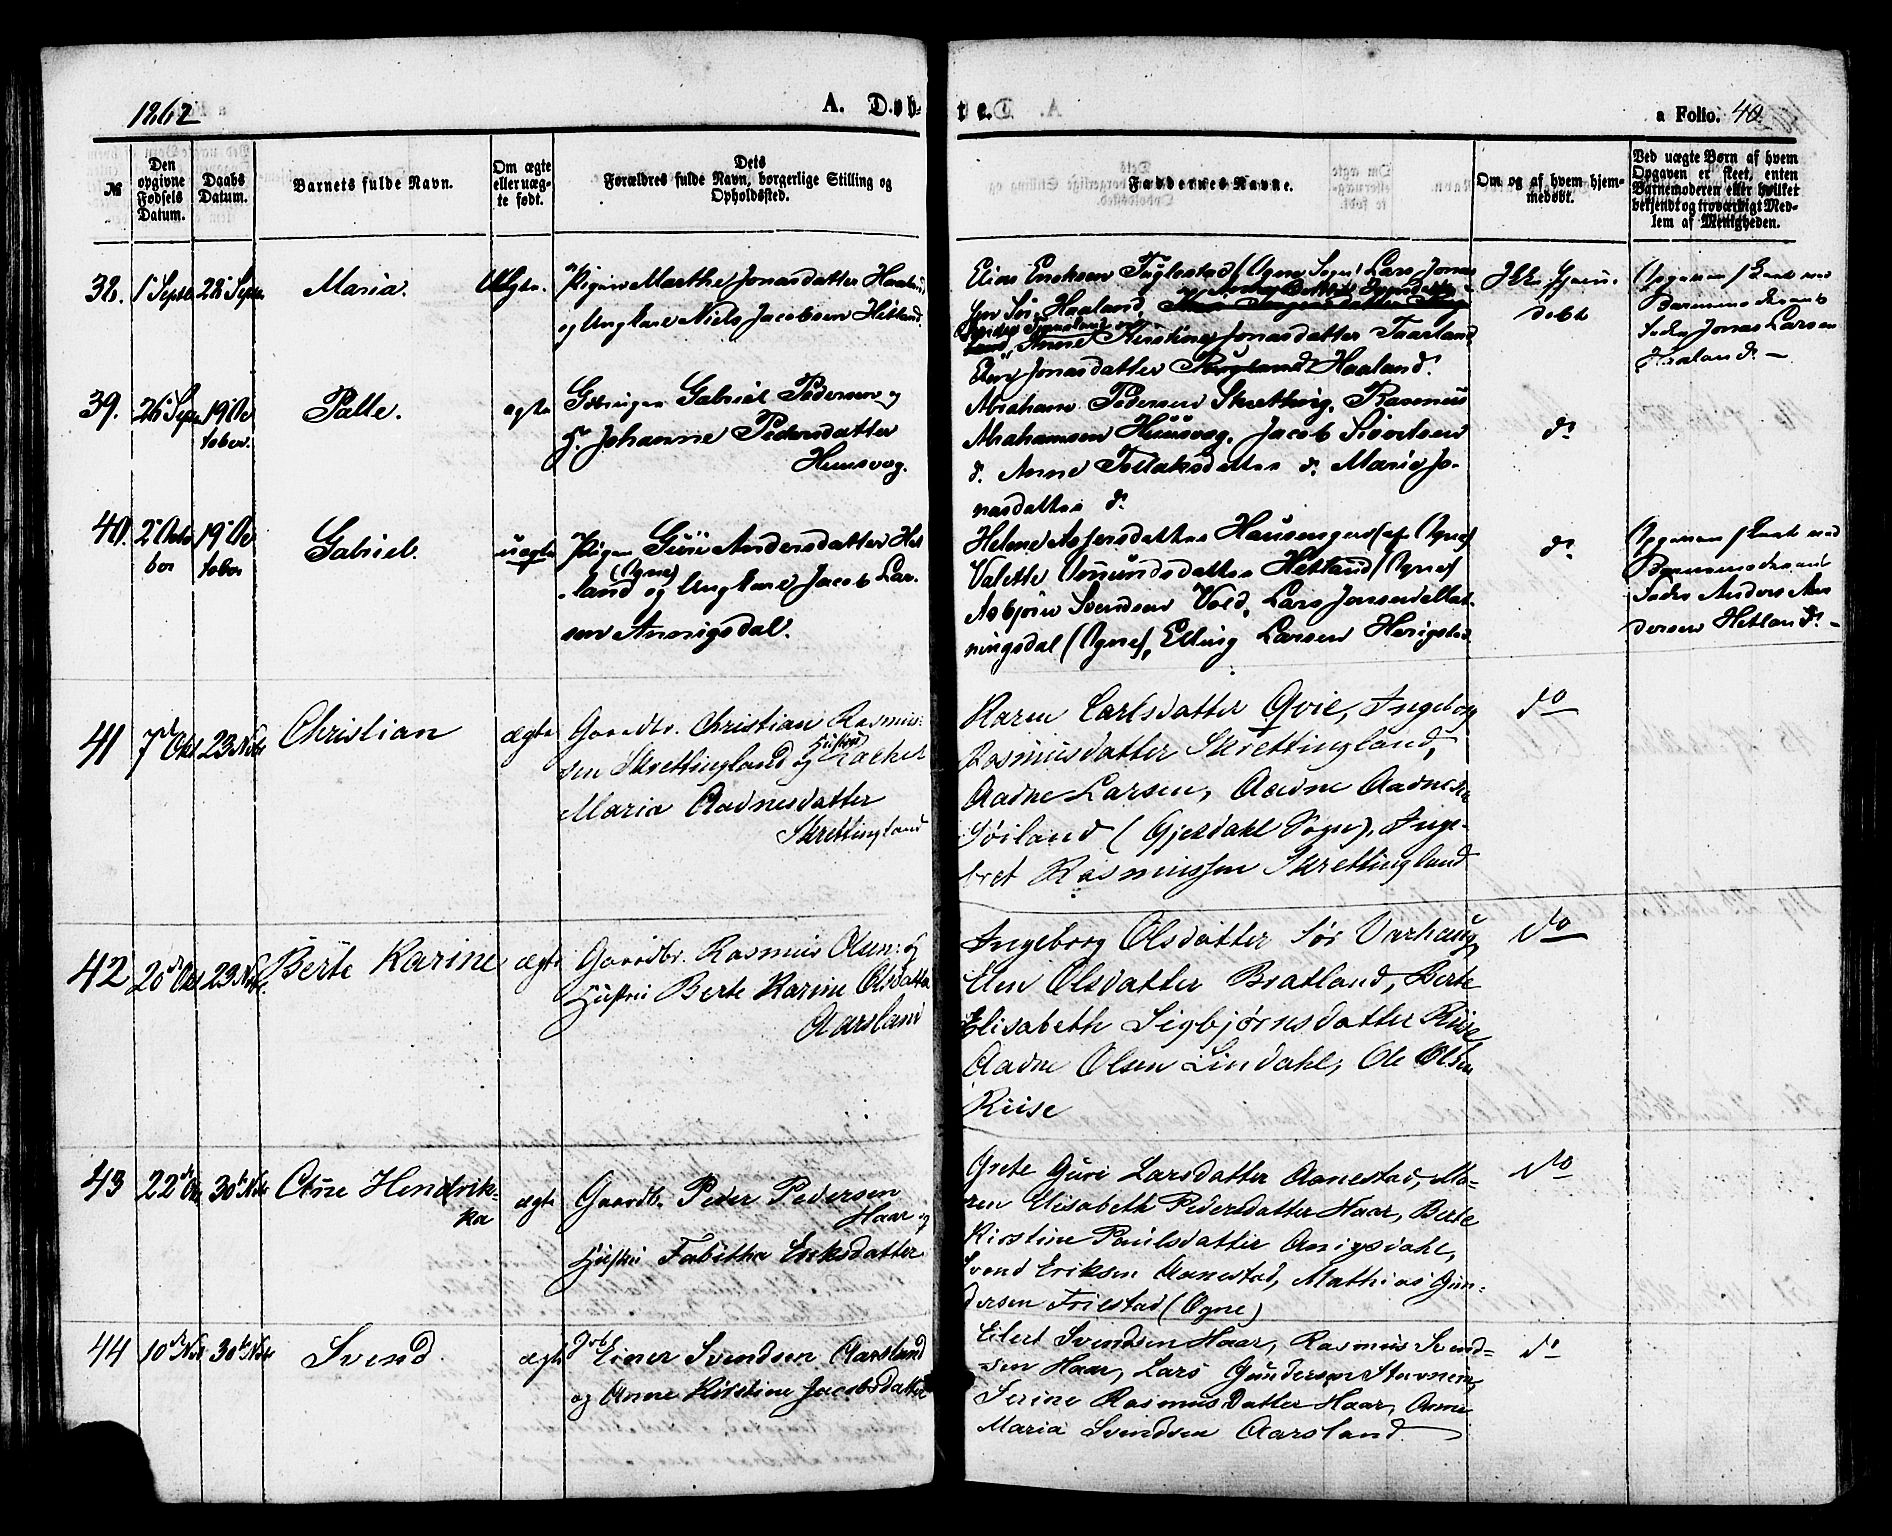 1862
A. Døb-
te.
a Folio. 40
№
Den
opgivne
Fødsels
Datum.
Daabs
Datum.
Barnets fulde Navn.
Om ægte
eller uæg-
te født.
Dets
Forældres fulde Navn, borgerlige Stilling og
Opholdssted.
Faddernes Navne.
Om og af hvem hjem-
medøbt.
Ved uægte Børn af hvem
Opgaven er skeet, enten
Barnemoderen eller hvilket
bekjendt og troværdigt Med-
lem af Menigheden.
38.
1 Septr
28 Septr
Maria.
Uægte.
Pigen Marthe Jonasdatter Haaland
og Ungkarl Niels Jacobsen Hetland.
Elias Ericksen Fuglestad (Ogne Sogn) Lars Jonas
sen Sør Haaland,
Anne Kirstine Jonasdatter Taarland
Elen Jonasdatter Haaland.
Ikke hjem-
døbt
Opgaven skeet ved
Barnemoderens
Fader Jonas Larsen
Haaland.
39.
26 Septr
19 Oc
tober.
Palle.
ægte
Gabriel Pedersen og
H. Johanne Pedersdatter
Huusvog.
Abraham Pedersen Skretting, Rasmus
Abrahamsen Huusvog, Jacob Sivertsen
do. Anne Tollaksdatter do. Maria Jo-
nasdatter do.
do.
40.
2 Octo
ber
19 Oc
tober
Gabriel.
uægte
Pigen Guri Andersdatter Het
land (Ogne) og Ungkarl Jacob Lar-
sen Annigsdal.
Helene Asgersdatter (af Ogne)
Valette Omundsdatter Hetland (Ogne)
Asbjørn Svendsen Vold, Lars Jensen Mat-
ningsdal (Ogne), Elling Larsen Herigstad
do.
Opgaven skeet ved
Barnemoderens
Fader Anders An
dersen Hetland.
41
7d Oct
23 Novbr
Christian
ægte
Gaardbr. Christian Rasmus-
sen Skrettingland og Hustru Rachel
Maria Aadnesdatter
Skrettingland
Karen Carlsdatter Qvie, Ingeborg
Rasmusdatter Skrettingland,
Aadne Larsen, Aadne Aadnesen
Søiland (Gjesdahl Sogn), Inge-
bret Rasmussen Skrettingland
do
42
20d Oct
23 Novbr.
Berte Karine
ægte
Gaardbr. Rasmus Olsen og
Hustru Berte Karine Olsdatter
Aarsland
Ingeborg Olsdatter Sør Varhaug,
Elen Olsdatter Bratland, Berte
Elisabeth Sigbjørnsdatter Riise
Aadne Olsen Lindahl, Ole Olsen
Riise
do
43
22d Oct
30te Nov
Ane Hendrik-
ka
ægte
Gaardbr. Peder Pedersen
Haar og
Hustru Tabitha Eriksdatter
Grete Guri Larsdatter Aanestad, Ma-
ren Elisabeth Pedersdatter Haar, Berte
Kirstine Paulsdatter Anigsdahl,
Svend Eriksen Aanestad, Mathias Gun-
dersen Friestad (Ogne)
do
44
10de Nov
30te Nov
Svend
ægte
Einer Svendsen Aarsland
og Anne Kirstine Jacobsdatter
Eilert Svendsen Haar, Rasmus Svend-
sen Haar, Lars Gundersen Stavnem,
Serine Rasmusdatter Haar, Anne
Maria Svendsen Aarsland.
do